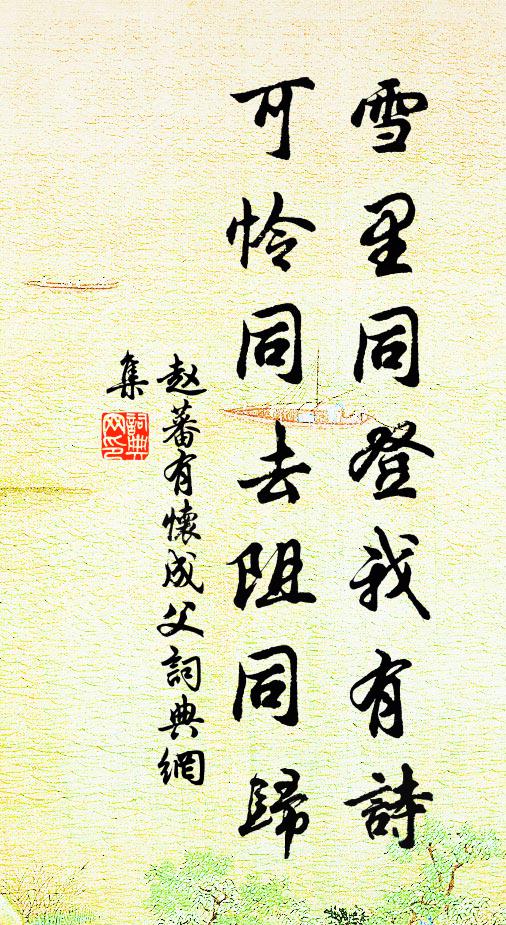 雪里同登我有詩
可怜同去阻同歸
赵蕃有懷成父詞典網
集
詞典
网印